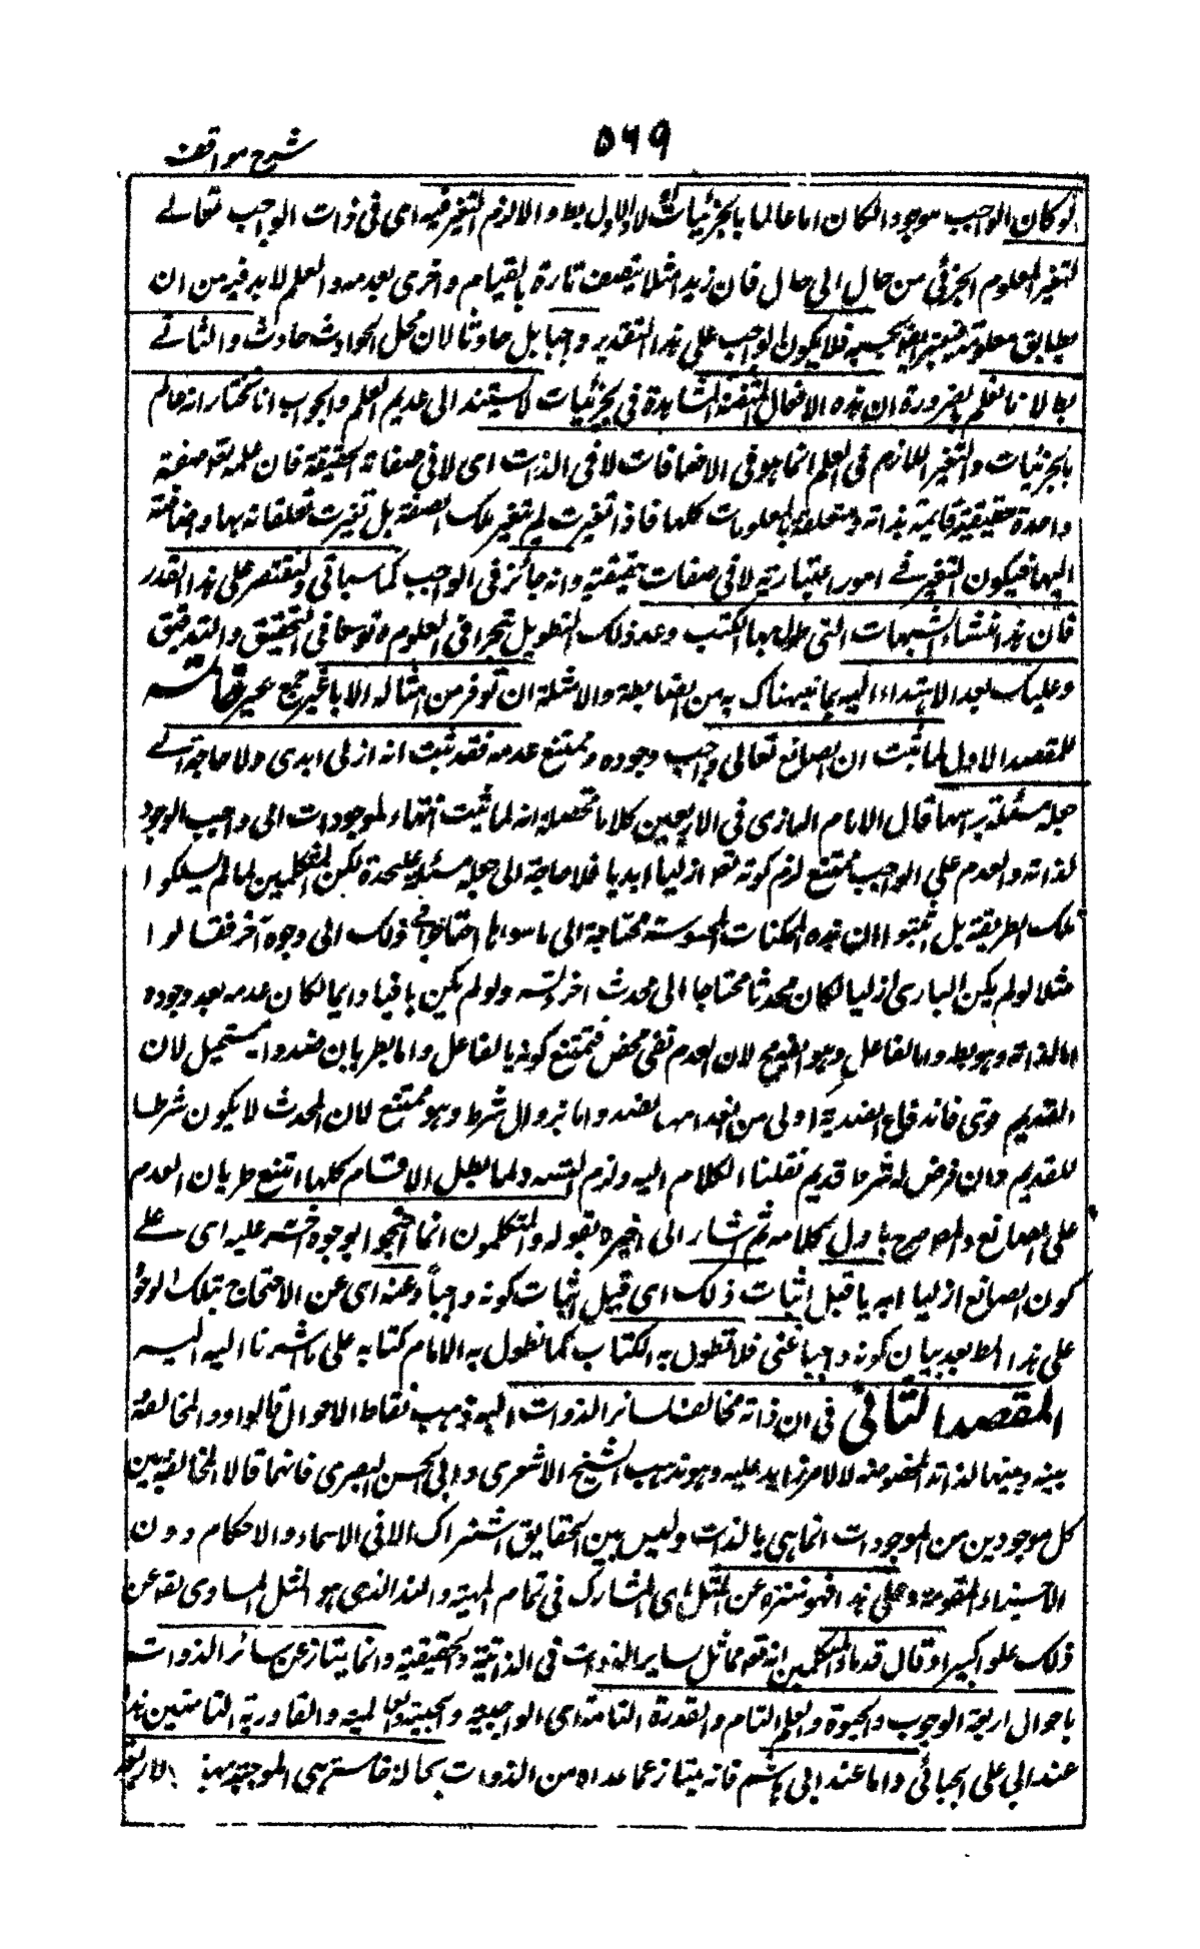 شرح مواقف
٥٦٩
لو كان الواجب موجودا لكان اما عالما بالجزئيات او لا والاول بط والا لزم التغير فيه اى فى ذات الواجب تعالے
لتغير المعلوم الجزئى من حال الى حال فان زيدا مثلا يتصف تارة بالقيام واخرى بعدمه والعلم لا بد فيه من ان
يطابق معلومه فيتغير بحسبه فلا يكون الواجب على هذا التقدير واجبا بل حادثا لان محل الحوادث حادث والثانے
بط لانا نعلم بالضرورة ان هذه الافعال المتقنة المشاهدة فى الجزئيات لا يستند الى عديم العلم والجواب انا نختار انه عالم
بالجزئيات والتغير اللازم فى العلم انما هو فى الاضافات لا فى الذات اى لا فى صفاته الحقيقة فان علمه تعو صفة
واحدة حقيقية قايمة بذاته ومتعلقة بالمعلومات كلها فاذا تغيرت لم تتغير تلك الصفة بل تغيرت تعلقاته بها واضافته
اليها فيكون التغير فے امور اعتبارية لا فى صفات حقيقية وانه جائز فى الواجب كما سياتى ولنقتصر على هذا القدر
فان هذا منشاء الشبهات التى طول بها الكتب وعد ذلك التطويل تبحرا فى العلوم وتوسعا فى التحقيق والتدقيق
وعليك بعد الاهتداء اليه بما نبهناك به من الضابطة والامثلة ان توفر من امثاله الاباعير جمع
المقصد الاول لما ثبت ان الصانع تعالى واجب وجوده وممتنع عدمه فقد ثبت انه ازلى ابدى ولا حاجة الے
جعله مسئلة براسها قال الامام الرازى فى الاربعين كلاما محصله انه لما ثبت انتهاء الموجودات الى واجب الوجود
لذاته والعدم على الواجب ممتنع لزم كونه تعو ازليا ابديا فلا حاجة الى جعله مسئلة عليحدة لكن المتكلمين لما لم يسلكوا
تلك الطريقة بل اثبتوا ان هذه الممكنات المحسوسة محتاجة الى ما سواها احتاجوا فے ذلك الى وجوه آخر فقالوا
مثلا لو لم يكن البارى ازليا لكان محدثا محتاجا الى محدث اخر ولتسه ولو لم يكن باقيا دايما لكان عدمه بعد وجوده
اما لذاته وهو بط واما لفاعل وهو ايضا مح لان العدم نفى محض فيمتنع كونه بالفاعل واما بطريان ضد وانه مستحيل لان
القديم اقوى فاندفاع الضد به اولى من انعدامه بالضد واما بزوال شرط وهو ممتنع لان المحدث لا يكون شرطا
للقديم وان فرض له شرط قديم نقلنا الكلام اليه ولزم التسه ولما بطل الاقسام كلها امتنع طريان العدم
على الصانع والمص صرح باول كلامه ثم اشار الى اخيره بقوله والمتكلمون انما احتجوا بوجوه اخر عليه اى على
كون الصانع ازليا ابديا قبل اثبات ذلك اى قبل اثبات كونه واجبا وعنه اى عن الاحتجاج بتلك الوجوه
على هذا المط بعد بيان كونه واجبا غنى فلا نطول به الكتاب كما نطول به الامام كتابه على ما اشرنا اليه
المقصد الثانى فى ان ذاته مخالفة لسائر الذوات اليه ذهب نفاة الاحوال قالوا والمخالفة
بينه وبينها لذاته المخصوصة لا لامر زايد عليه وهو مذهب الشيخ الاشعرى وابى الحسن البصرى فانهما قالا المخالفة بين
كل موجودين من الموجودات انما هى بالذات وليس بين الحقايق اشتراك الا فى الاسماء والاحكام دون
الاجزاء المقومة وعلى هذا فهو منزه عن المثل اى المشارك فى تمام المهية والند الذى هو المثل المساوى تعو عن
ذلك علوا كبيرا وقال قدماء المتكلمين انه تعو مماثل لساير الذوات فى الذاتية والحقيقية وانما يمتاز عن سائر الذوات
باحوال اربعة الوجوب والحيوة والعلم التام والقدرة التامة اى الواجبية والحيية والعالمية والقادرية التامتين هذا
عند ابى على الجبائى واما عند ابى هاشم فانه يمتاز عما عداه من الذوات بحالة خامسة هى الموجبة لهذه الاربعة